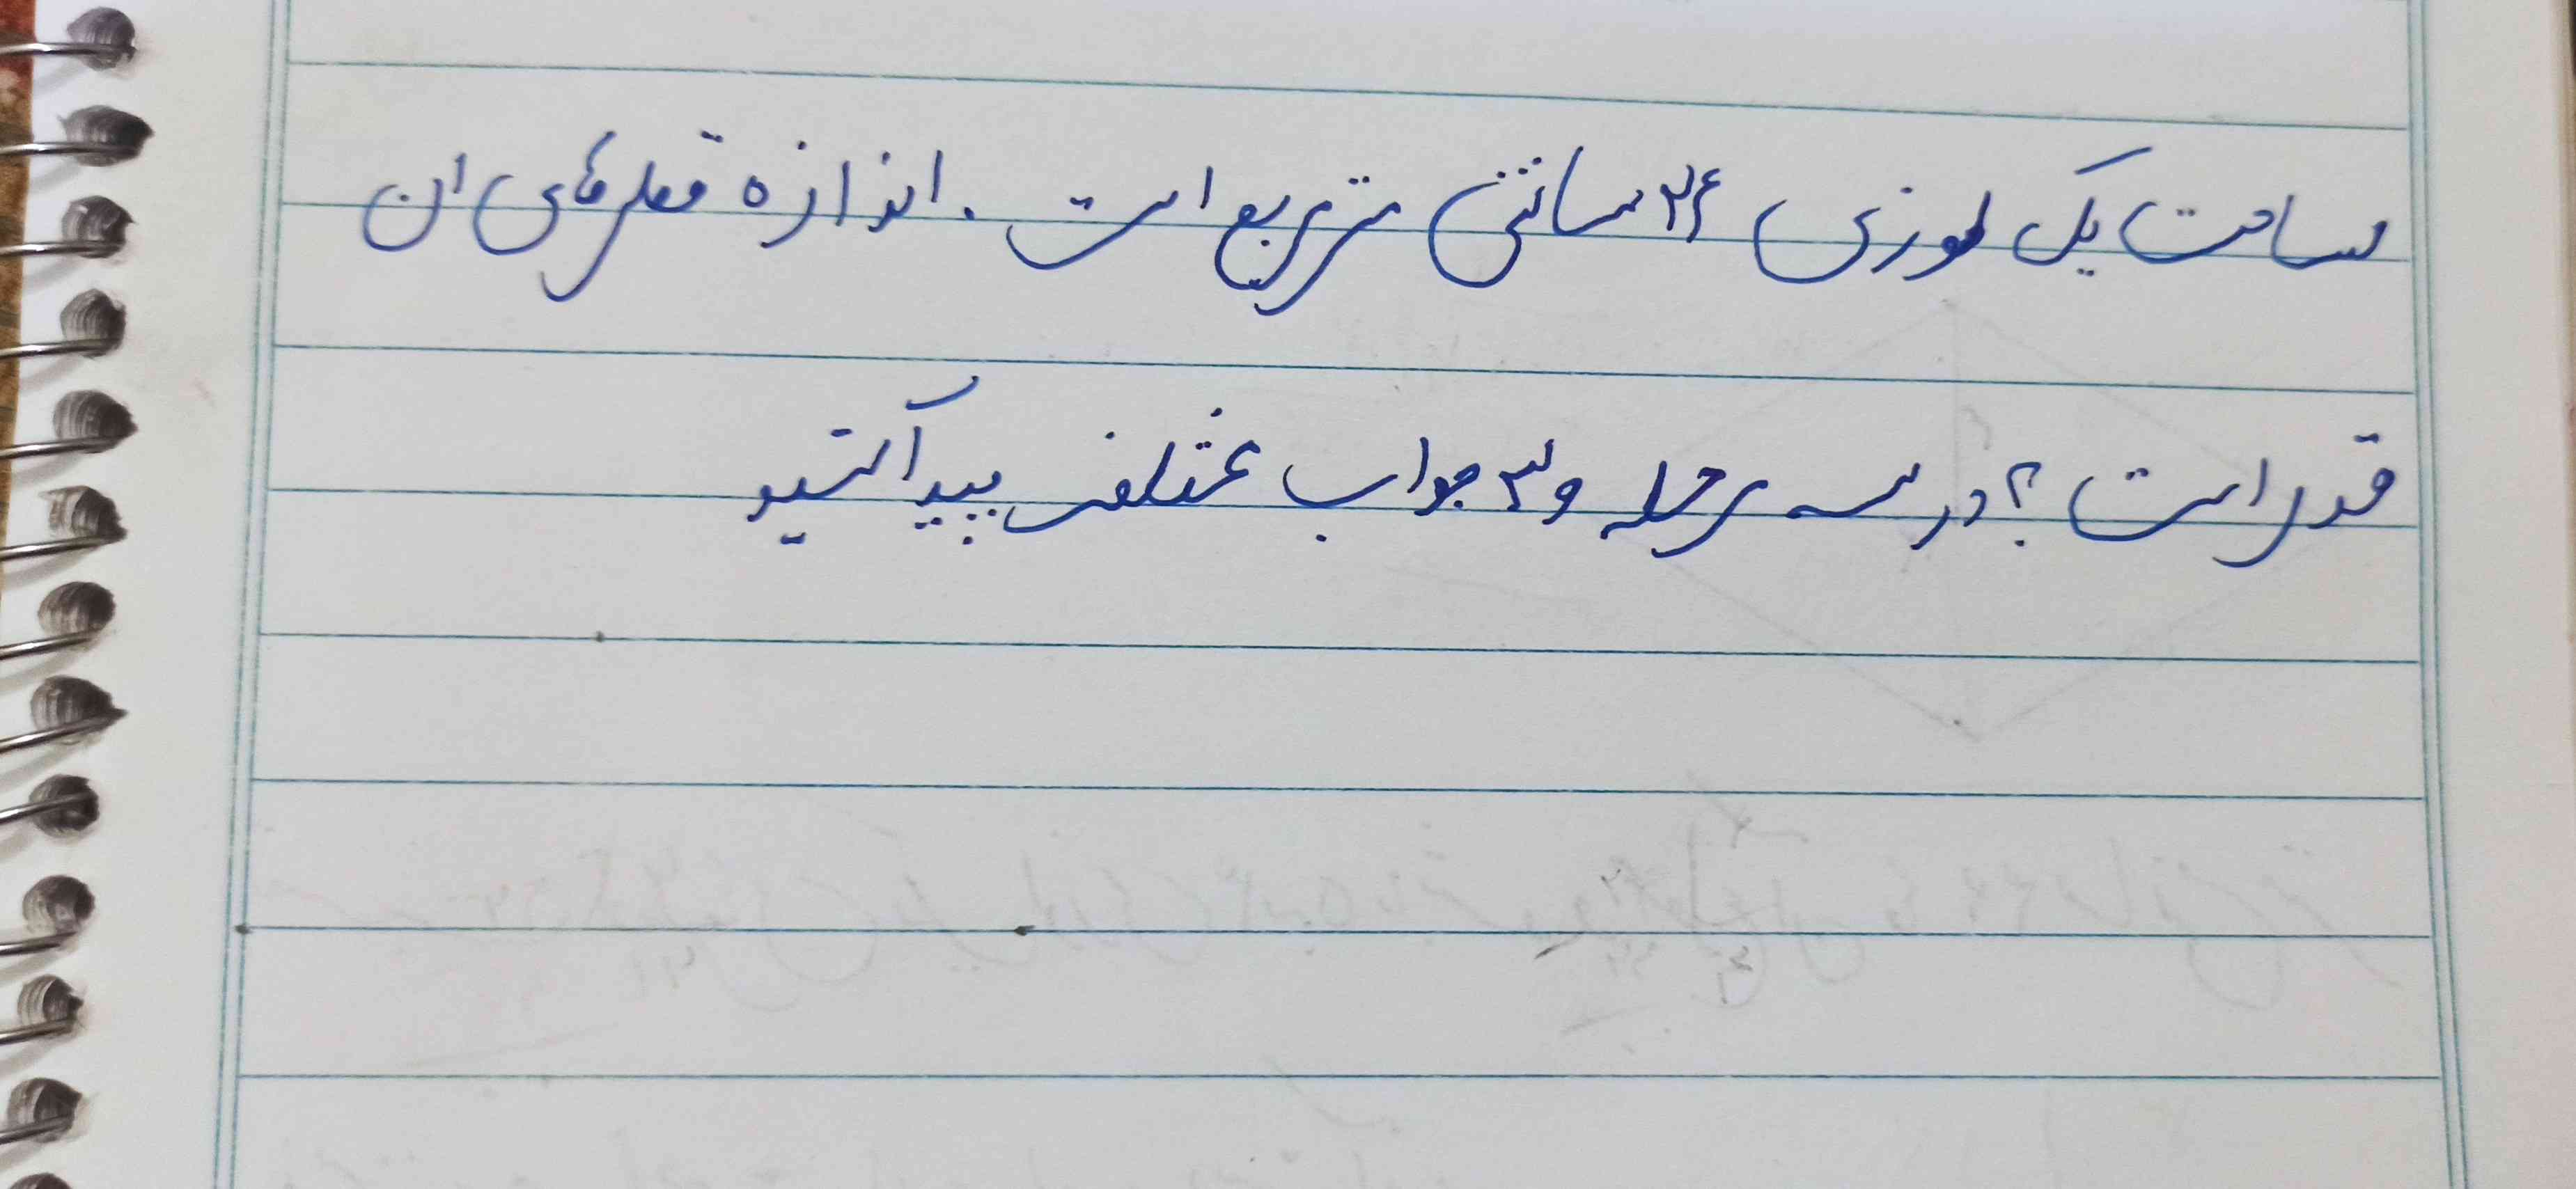 مساحت یک لوزی ۳۶ سانتی متر مربع است . اندازه قطرهای ان
قدر است ؟ در سه مرحله و ۳ جواب مختلف پیدا کنید